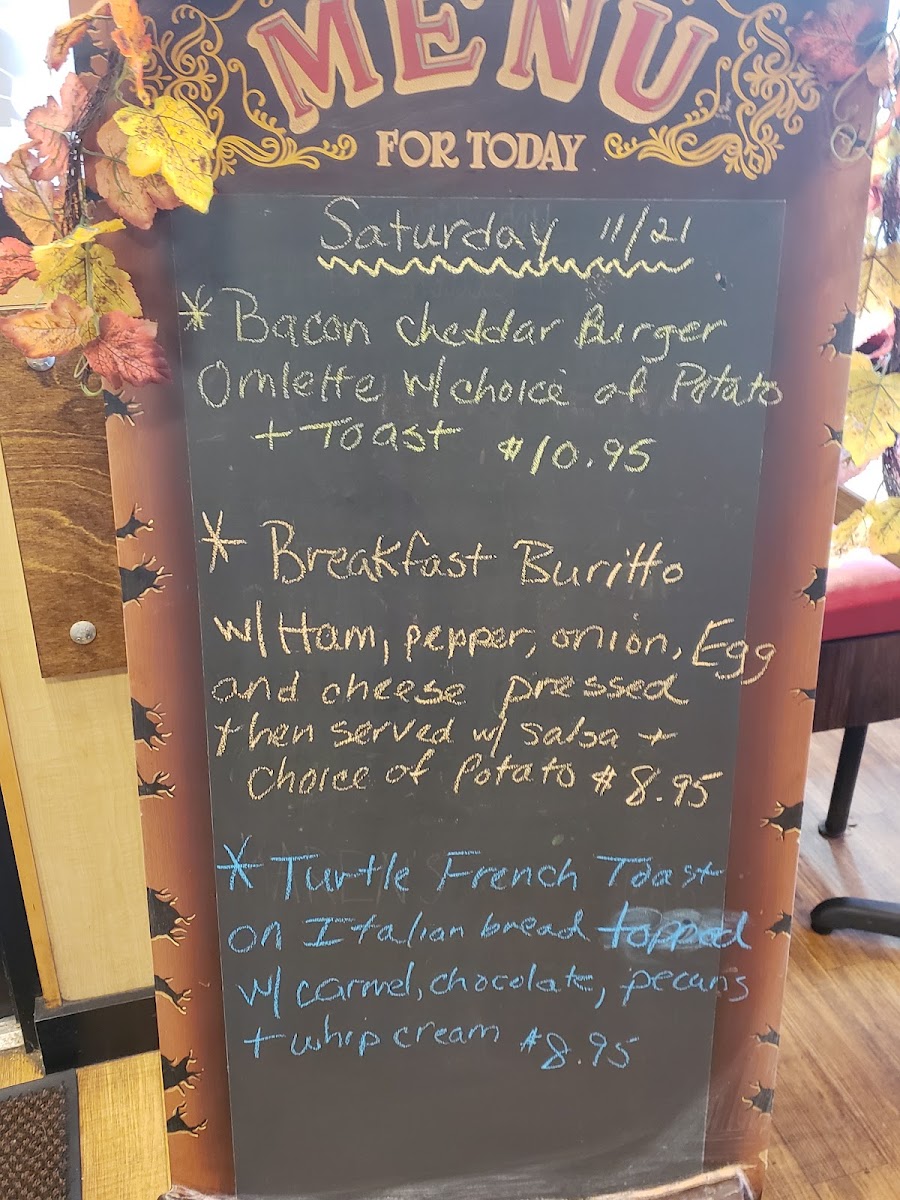 MENU
FOR TODAY
Saturday 11/21
* Bacon Cheddar Burger
Omlette w/ choice of Potato
+ Toast $10.95
* Breakfast Buritto
w/ Ham, pepper, onion, Egg
and cheese pressed
then served w/ salsa +
choice of Potato $8.95
* Turtle French Toast
on Italian bread topped
w/ carmel, chocolate, pecans
+ whip cream $8.95